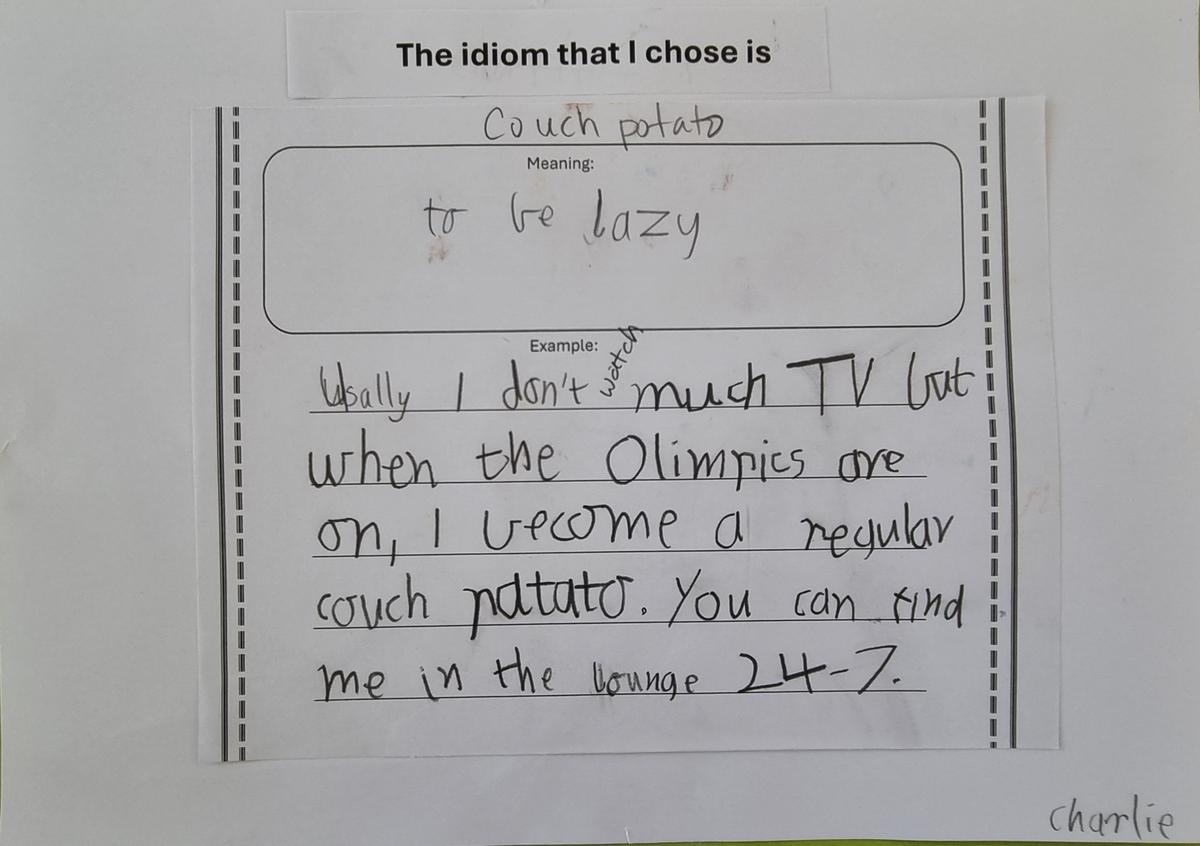 The idiom that I chose is
Couch potato
Meaning:
to be lazy
Example:
Usally I don't watch much TV but
when the Olimpics are
on, I become a regular
couch potato. You can find
me in the lounge 24-7.
charlie